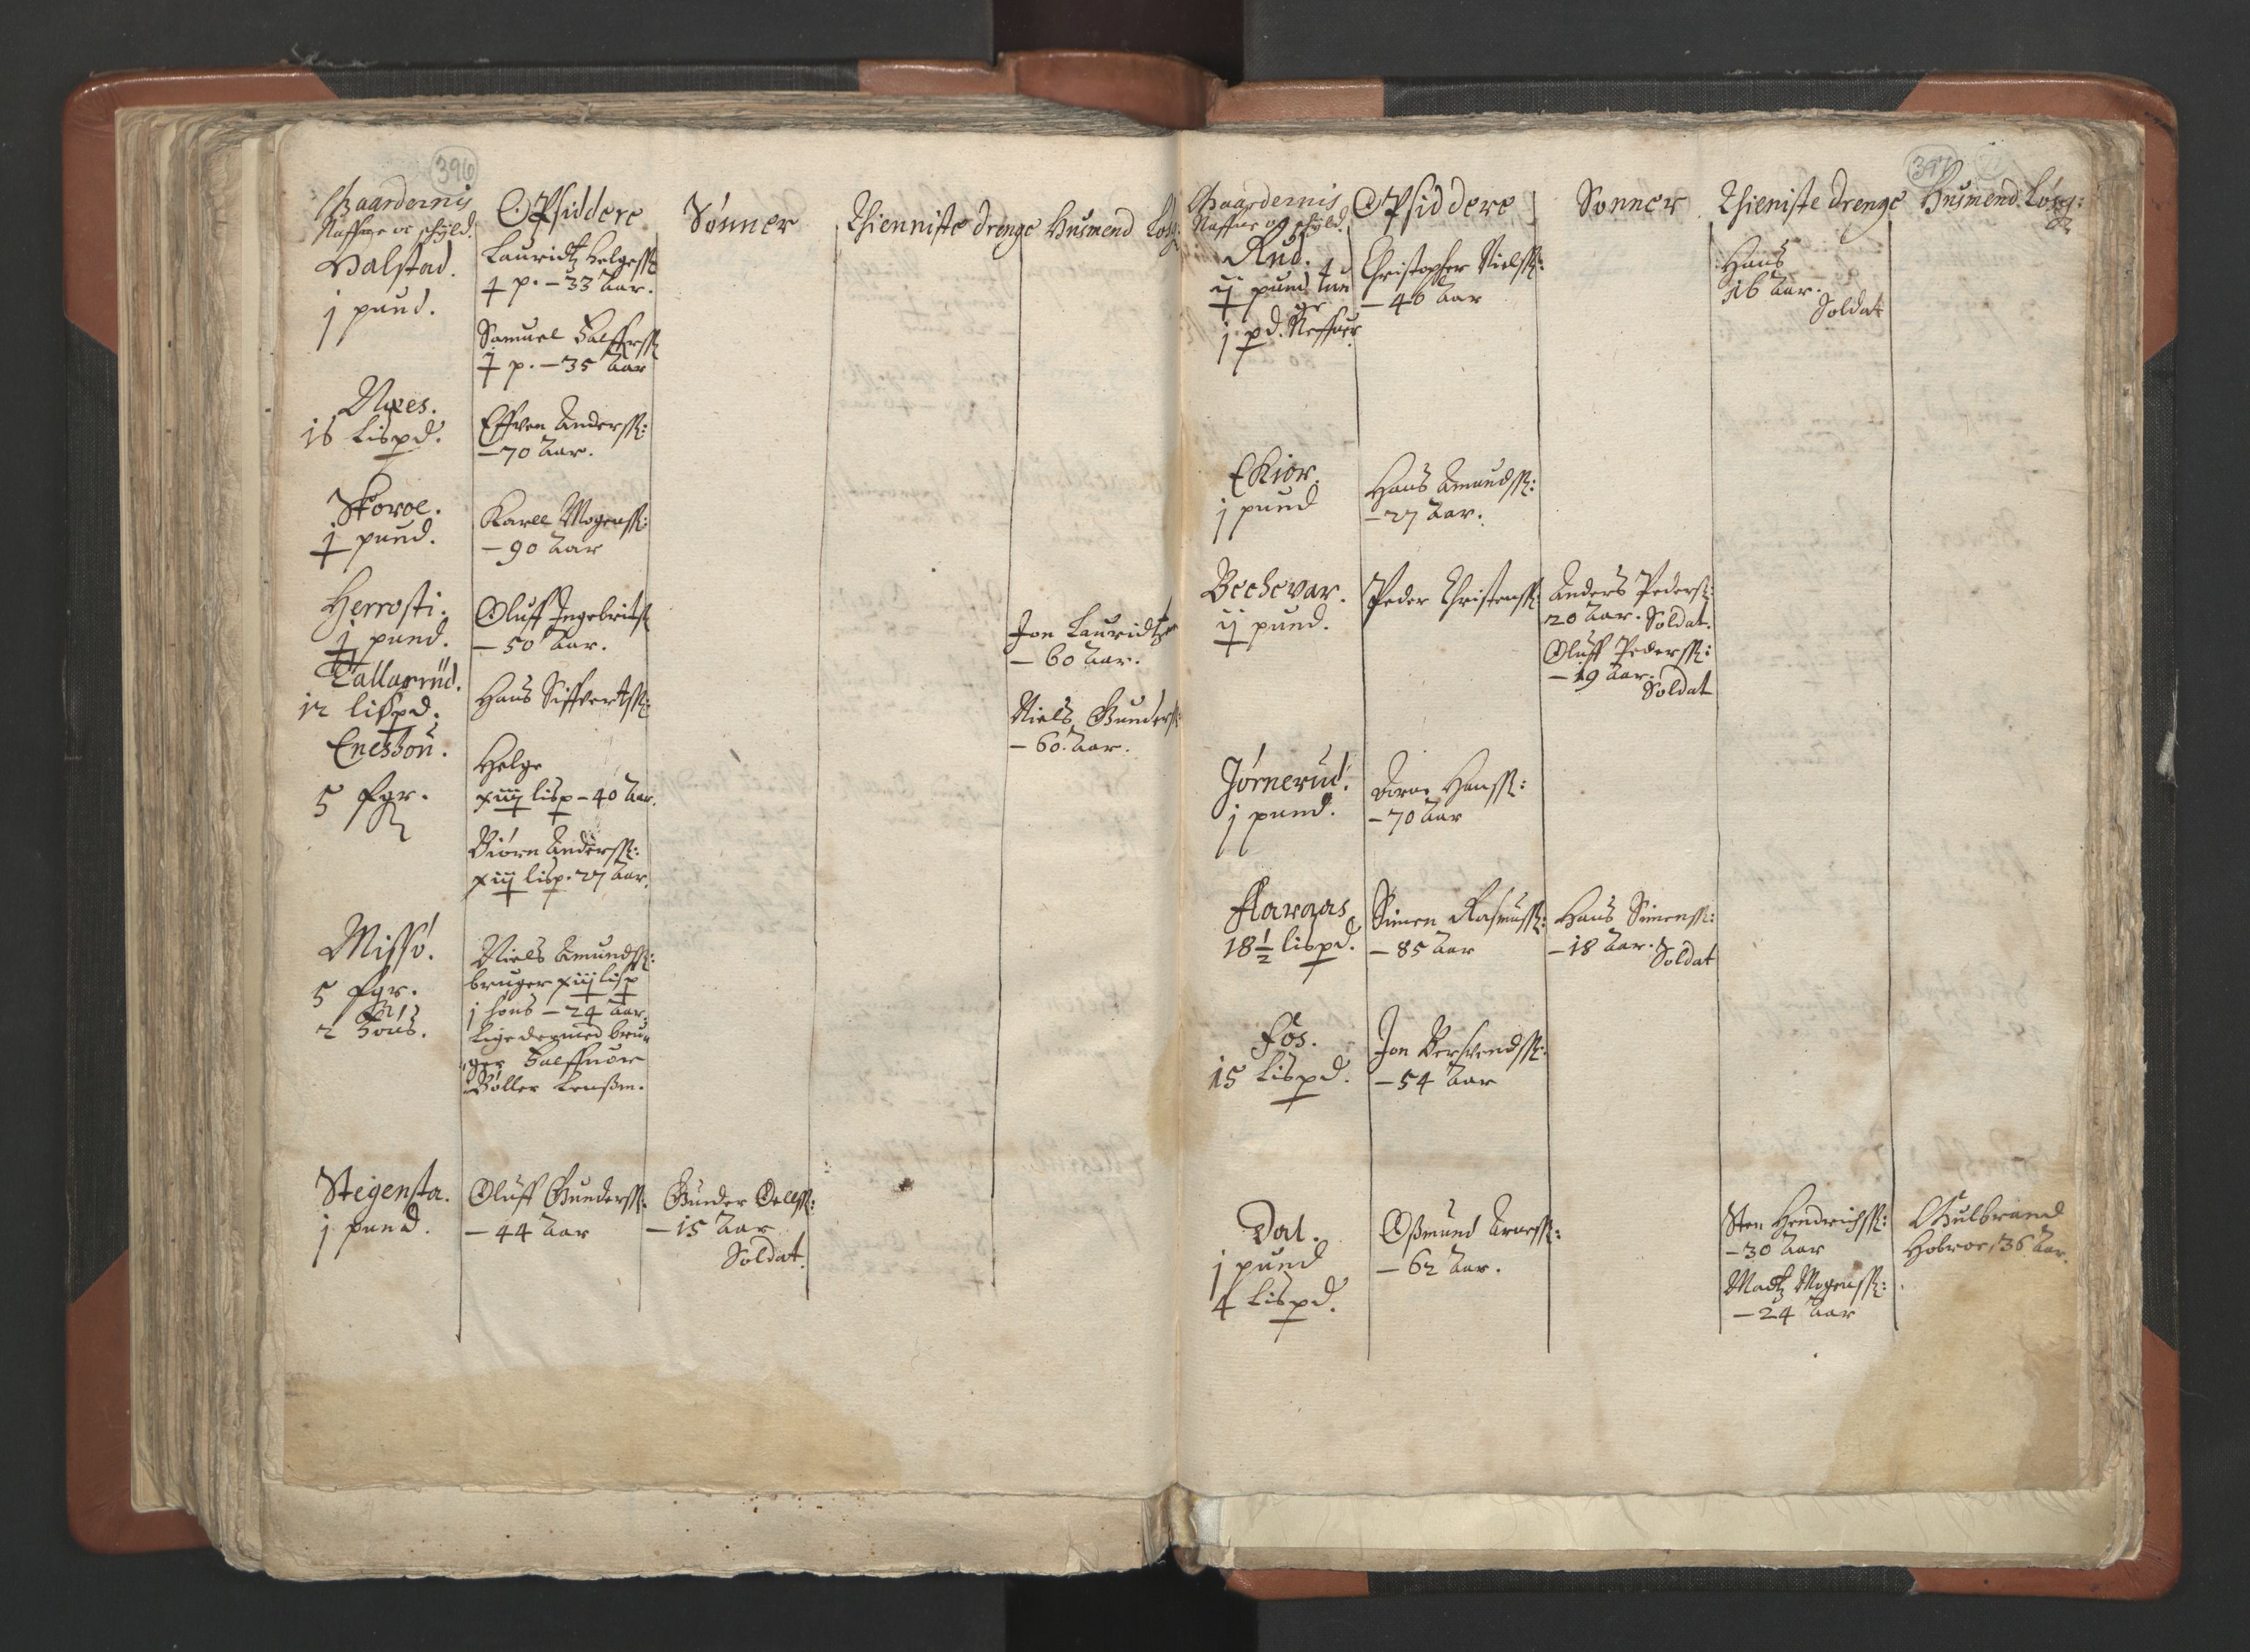 396
Gaardernis
Naffne oc schyld.
Opsiddere
Sønner
Thienniste drenge
Husmend
Halstad.
j pund.
Lauridtz Helgess:
p. – 33 Aar.
Samuel Halffuerss:
p. – 35 Aar
Næs.
16 Lispd.
Effven Anderss:
– 70 Aar.
Skoroe.
j pund.
Karll Mogenss:
– 90 Aar
Herrosti.
j pund.
Oluff Ingebritss
– 50 Aar.
Jon Lauridtzen
– 60 Aar.
Tallarud.
12 lispd.
Hans Siffvertss:
Niels Gunderss:
– 60. Aar.
Enesson.
5 fgr.
Helge
xiij lisp – 40 Aar.
Biørn Anderss:
xiij lisp. 27 Aar.
Missó.
5 fgr.
2 Hons.
Niels Amundss:
bruger xiij lisp
j hons – 24 Aar.
Lige dermed bru„
„ger Halffuor
Bøller Lensm.
Stegensta.
j pund.
Oluff Gunderss:
– 44 Aar
Gunder Oelss:
– 15 Aar
Soldat.
397
Gaardernis
Naffne og schyld.
Opsiddere
Sønner
Thieniste drenge
Husmend
Løsg:
Rud.
ij pund tun
ge
j pd. Neffuer
Christopher Nielss:
– 46 Aar
Hans
16 Aar.
Soldat
Ekior.
j pund
Hans Amundss:
– 27 Aar.
Bechevar.
ij pund.
Peder Christenss:
Anders Pederss:
20 Aar. Soldat.
Oluff Pederss:
– 19 Aar.
Soldat
Jørnerud.
j pund.
Arne Hanss:
– 70 Aar
Haraas
18½ lispd.
Simen Rasmuss:
– 85 Aar
Hans Simenss:
– 18 Aar.
Soldat
Fos.
15 Lispd.
Jon Bersvendss:
– 54 Aar
Dal.
j pund
4 Lispd.
Osmund Arness:
– 62 Aar.
Sten Hendrichss:
– 30 Aar
Madtz Mogenss:
– 24 Aar
Gulbrand
Hobroe, 36 Aar.